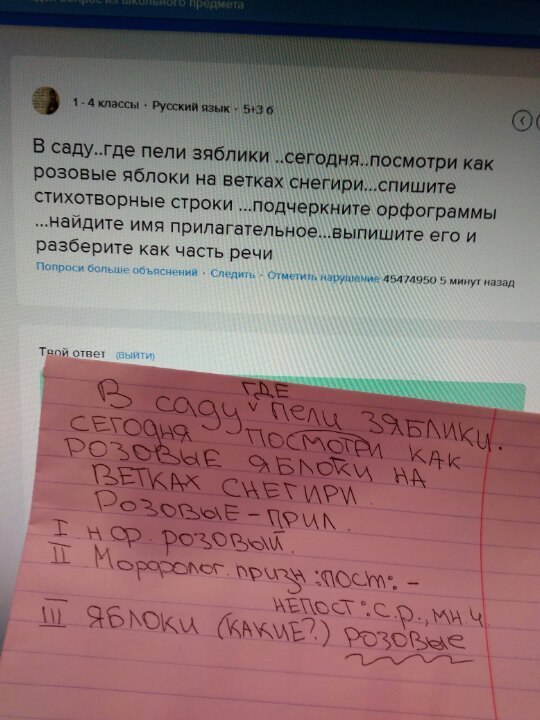 вопрос из школьного предмета
1 - 4 классы · Русский язык · 5+3 б
В саду..где пели зяблики ..сегодня..посмотри как
розовые яблоки на ветках снегири...спишите
стихотворные строки ...подчеркните орфограммы
...найдите имя прилагательное...выпишите его и
разберите как часть речи
Попроси больше объяснений · Следить · Отметить нарушение 45474950 5 минут назад
Твой ответ (ВЫЙТИ)
В саду где пели зяблики.
сегодня посмотри как
розовые яблоки на
ветках снегири.
Розовые – прил.
I н.ф. розовый.
II Морфолог. призн: пост: –
непост: с.р., мн ч.
III яблоки (какие?) розовые